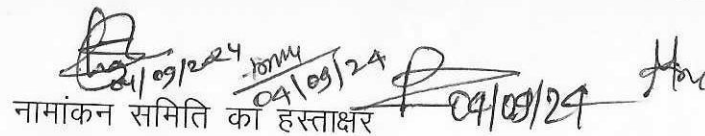 04/09/2024 04/09/24 04/09/24
नामांकन समिति का हस्ताक्षर